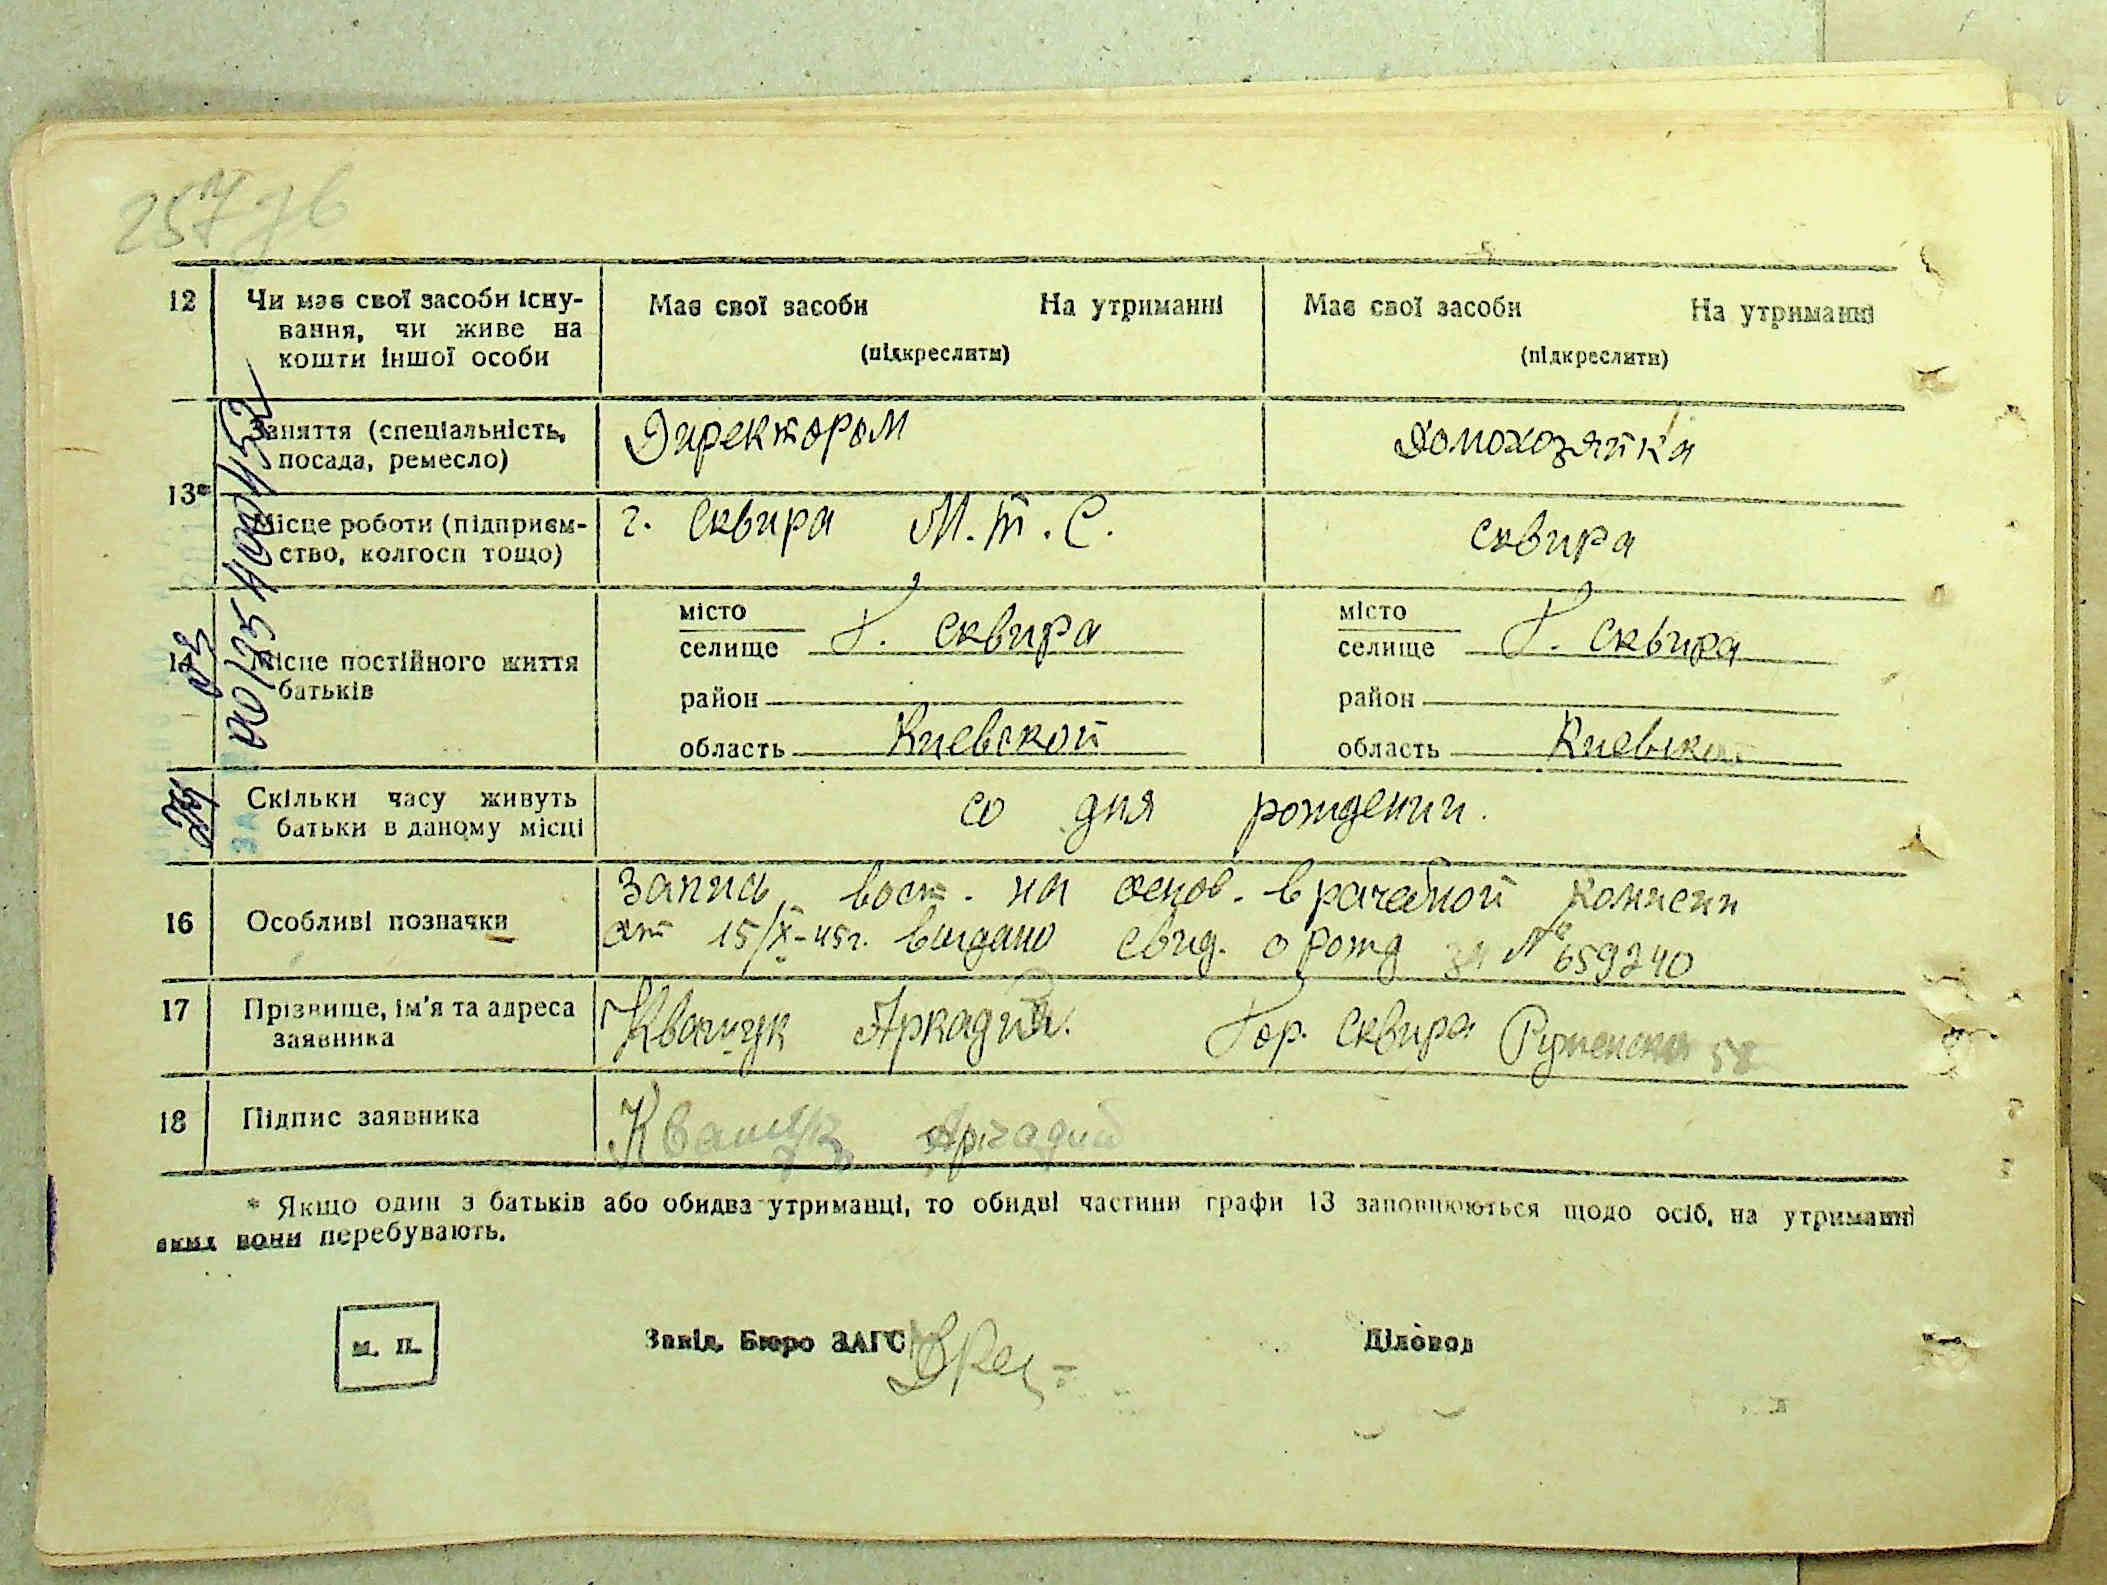 257 зв
12 Чи має свої засоби існу-
вання, чи живе на
кошти іншої особи
Має свої засоби На утриманні
(підкреслити)
Має свої засоби На утриманні
(підкреслити)
13*
Заняття (спеціальність,
посада, ремесло)
Директором
Домохозяйка
Місце роботи (підприєм-
ство, колгосп тощо)
г. Сквира М.Т.С.
Сквира
Місце постійного життя
батьків
місто
селище Г. Сквира
район
область Киевской
місто
селище Г. Сквира
район
область Киевской
Скільки часу живуть
батьки в даному місці
со дня рождении.
16 Особливі позначки
Запись вост. на основ. врачебной комиси
от 15/X-45г. выдано свид. о рожд за № 659240
17 Прізвище, ім'я та адреса
заявника
Квашук Аркадий. Гор. Сквира 58
18 Підпис заявника
Квашук Аркадий
* Якщо один з батьків або обидва утриманці, то обидві частини графи 13 заповнюються щодо осіб, на утриманні
яких вони перебувають.
м. п.
Завід. Бюро ЗАГС
Діловод